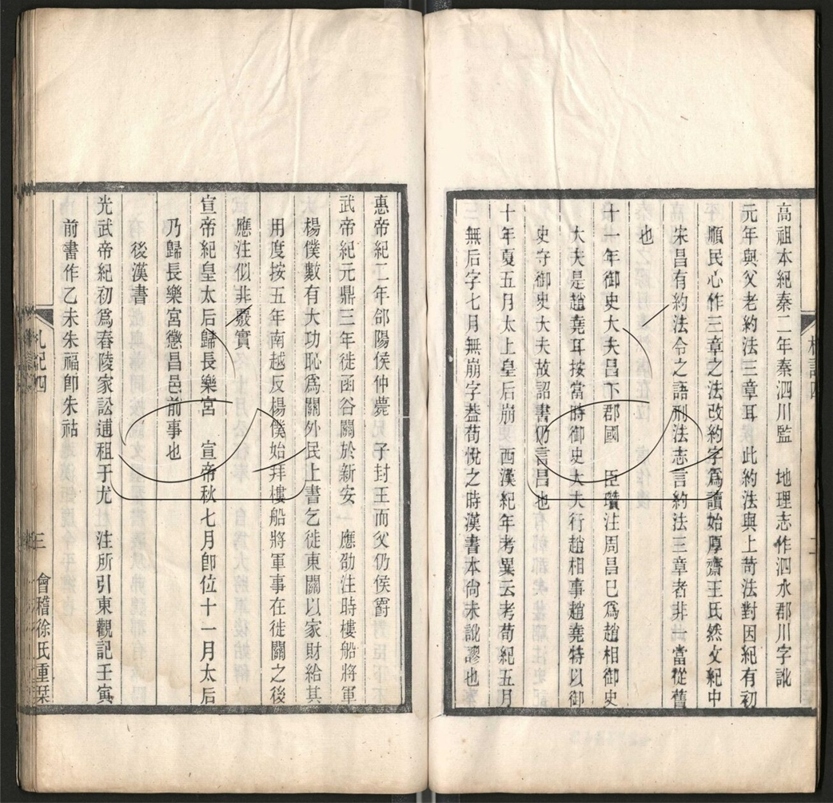 高祖本紀秦二年秦泗川監　地理志作泗水郡川字訛
元年與父老約法三章耳　此約法與上苛法對因紀有初
順民心作三章之法改約字爲讀始厚齋王氏然文紀中
宋昌有約法令之語刑法志言約法三章者非一當從舊
也
十一年御史大夫昌下郡國　臣瓚注周昌已爲趙相御史
大夫是趙堯耳按當時御史大夫行趙相事趙堯特以御
史守御史大夫故詔書仍言昌也
十年夏五月太上皇后崩　西漢紀年考異云考荀紀五月
無后字七月無崩字葢荀悅之時漢書本尚未訛謬也
惠帝紀二年郃陽侯仲薨　子封王而父仍侯爵
武帝紀元鼎三年徙函谷關於新安　應劭注時樓船將軍
楊僕數有大功恥爲關外民上書乞徙東關以家財給其
用度按五年南越反楊僕始拜樓船將軍事在徙關之後
應注似非覈實
宣帝紀皇太后歸長樂宮　宣帝秋七月卽位十一月太后
乃歸長樂宮懲昌邑前事也
後漢書
光武帝紀初爲舂陵家訟逋租于尤　注所引東觀記壬寅
前書作乙未朱福卽朱祜
札記四　三　會稽徐氏重栞